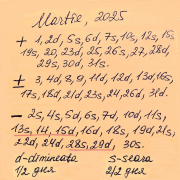 Martie, 2025
+ 1, 2d, 5s, 6d, 7s, 10s, 12s, 15s,
19s, 20, 23d, 25, 26s, 27, 28d,
29s, 30d, 31s.
± 3, 4d, 8, 9, 11d, 12d, 13d, 16s,
17s, 18d, 21d, 23s, 24, 26d, 31d.
- 2s, 4s, 5d, 6s, 7d, 10d, 11s,
13s, 14, 15d, 16d, 18s, 19d, 21s,
22d, 24d, 28s, 29d, 30s.
d-dimineata s-seara
1/2 дня 2/2 дня